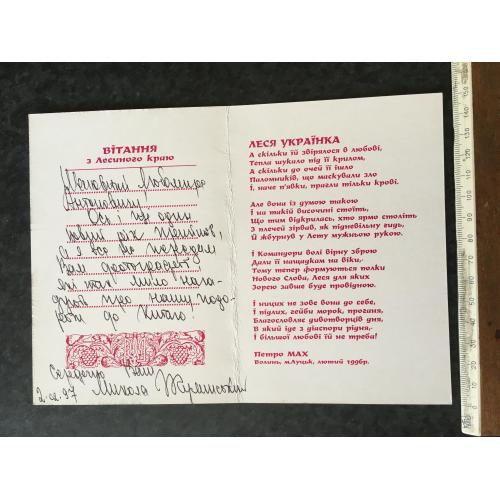 ВІТАННЯ
з Лесиного краю
Шановний Любомире
Антоновичу
Ось і ще один
рік
а я все не
Вам фотографії,
які так мило нага-
дують про нашу подо-
рож до Китаю!
Сердечно Ваш
Микола Жулинський
2.02.97
ЛЕСЯ УКРАЇНКА
А скільки їй звірялося в любові,
Тепла шукало під її крилом,
А скільки до очей її ішло
Паломників, що маскували зло
І, наче п'явки, прагли тільки крові.
Але вона із думою такою
І на такій височині стоїть,
Що тим відкрилась, хто ярмо століть
З плечей зірвав, як підневільну гидь,
Й жбурнув у Лету мужньою рукою.
І Командори волі вірну зброю
Дали її нащадкам на віки,
Тому тепер формуються полки
Нового Слова, Леся для яких
Зорею завше буде провідною.
І ницих не зове вона до себе,
І підлих, гейби морок, проганя,
Благословляє дивотворців дня,
В який іде з діаспори рідня,-
І більшої любові їй не треба!
Петро МАХ
Волинь, м.Луцьк, лютий 1996р.